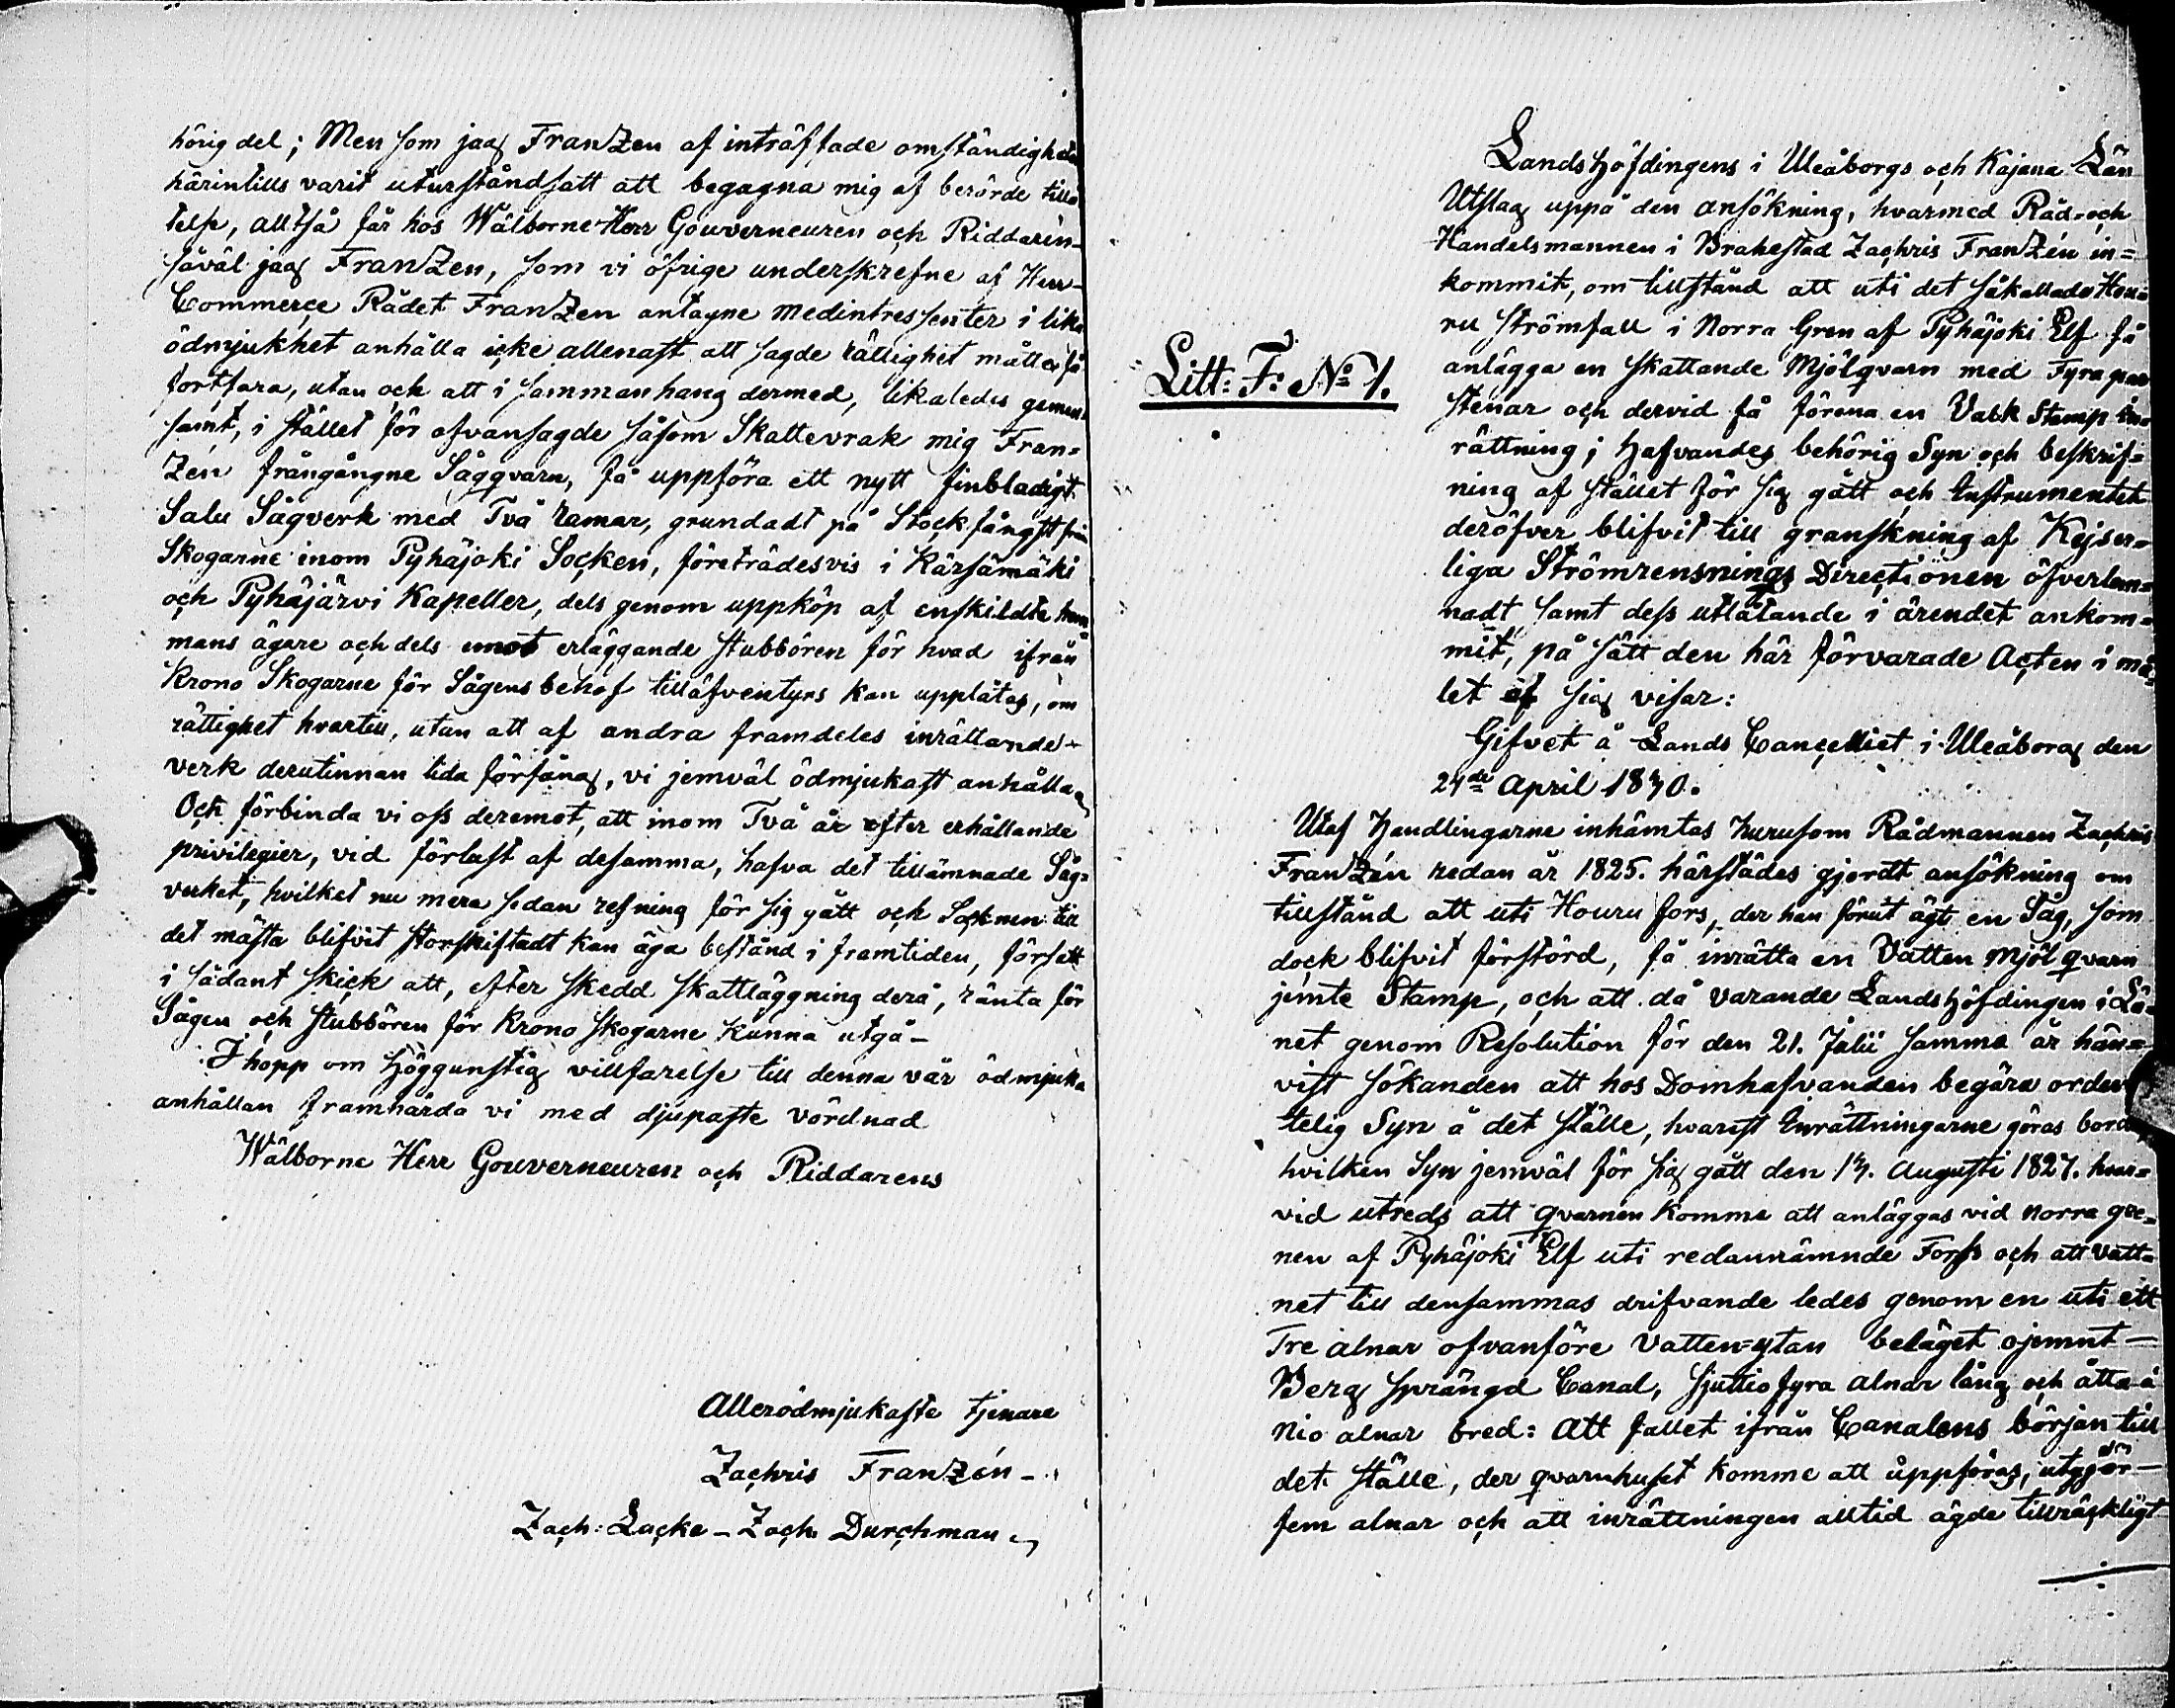 hörig del; Men som jag FranZen af inträffade omständigheter
härintills varit uturståndsatt att begagna mig af berörde tillå
telse, alltså får hos Wälborne Herr Gouverneuren och Riddaren
såväl jag FranZen, som vi öfrige underskrefne af Herr
Commerce Rådet FranZen antagne Medintressenter i lika
ödmjukhet anhålla icke allenast att sagde rättighet måtte få
fortfara, utan och att i sammanhang dermed, likaledes gemen-
samt, i stället för ofvansagde såsom Skattevrak mig Fran-
Zén frångångne Sågqvarn, få uppföra ett nytt finbladigt
Salu Sågverk med Två ramar, grundadt på Stockfångst från
Skogarne inom Pyhäjoki Socken, företrädesvis i Kärsämäki
och Pyhäjärvi Kapeller, dels genom uppköp af enskildte hem-
mans ägare och dels emot erläggande stubbören för hvad ifrån
Krono Skogarne för Sågens behof tilläfventyrs kan upplåtas, om
rättighet hvartill, utan att af andra framdeles inrättande
verk derutinnan lida förfång, vi jemväl ödmjukast anhålla
Och förbinda vi oss deremot, att inom Två år efter erhållande
privilegier, vid förlust af desamma, hafva det tillämnade Såg-
verket, hvilket nu mera sedan refning för sig gått och Socknen till
det mästa blifvit storskiftadt kan äga bestånd i framtiden, försatt
i sådant skick att, efter skedd skattläggning derå, ränta för
Sågen och stubbören för Krono skogarne kunna utgå –
I hopp om höggunstig villfarelse till denna vår ödmjuka
anhållan framhärda vi med djupaste vördnad
Wälborne Herr Gouverneuren och Riddarens
Allerödmjukaste tjenare
Zachris FranZén –
Zach: Lacke – Zach Durchman
Litt: F: No 1.
Landshöfdingens i Uleåborgs och Kajana Län
Utslag uppå den ansökning, hvarmed Råd- och
Handelsmannen i Brahestad Zachris FranZén in=
kommit, om tillstånd att uti det såkallade Hou=
ru strömfall i Norra Gren af Pyhäjoki Elf få
anlägga en skattande Mjölqvarn med Fyra par
stenar och dervid få förena en Valk Stamp in=
rättning; hafvandes behörig Syn och beskrif=
ning af stället för sig gått och Instrumentet
deröfver blifvit till granskning af Kejser=
liga Strömrensnings Directionen öfverlem=
nadt, samt dess utlåtande i ärendet ankom=
mit, på sätt den här förvarade Acten i må=
let af sig visar:
Gifvet å Lands Cancelliet i Uleåborg den
24de April 1830.
Utaf Handlingarne inhämtas hurusom Rådmannen Zachris
FranZén redan år 1825. härstädes gjordt ansökning om
tillstånd att uti Houru fors, der han förut ägt en Såg, som
dock blifvit förstörd, få inrätta en Vatten Mjöl qvarn
jemte Stamp, och att då varande Landshöfdingen i Lä=
net genom Resolution för den 21. Julii samma år hän=
vist sökanden att hos Domhafvanden begära orden
telig Syn å det ställe, hvarest Inrättningarne göras borde
hvilken Syn jemväl för sig gått den 13. Augusti 1827. hvar=
vid utreds att qvarnen komme att anläggas vid norra gre=
nen af Pyhäjoki Elf uti redannämnde Forss och att vatt=
net till densammas drifvande ledes genom en uti ett
Tre alnar ofvanföre vatten=ytan beläget ojemnt –
Berg sprängd Canal, sjuttiofyra alnar lång och åtta á
nio alnar bred: att fallet ifrån Canalens början till
det ställe, der qvarnhuset komme att uppföras, utgjör –
fem alnar och att inrättningen alltid ägde tillräckligt